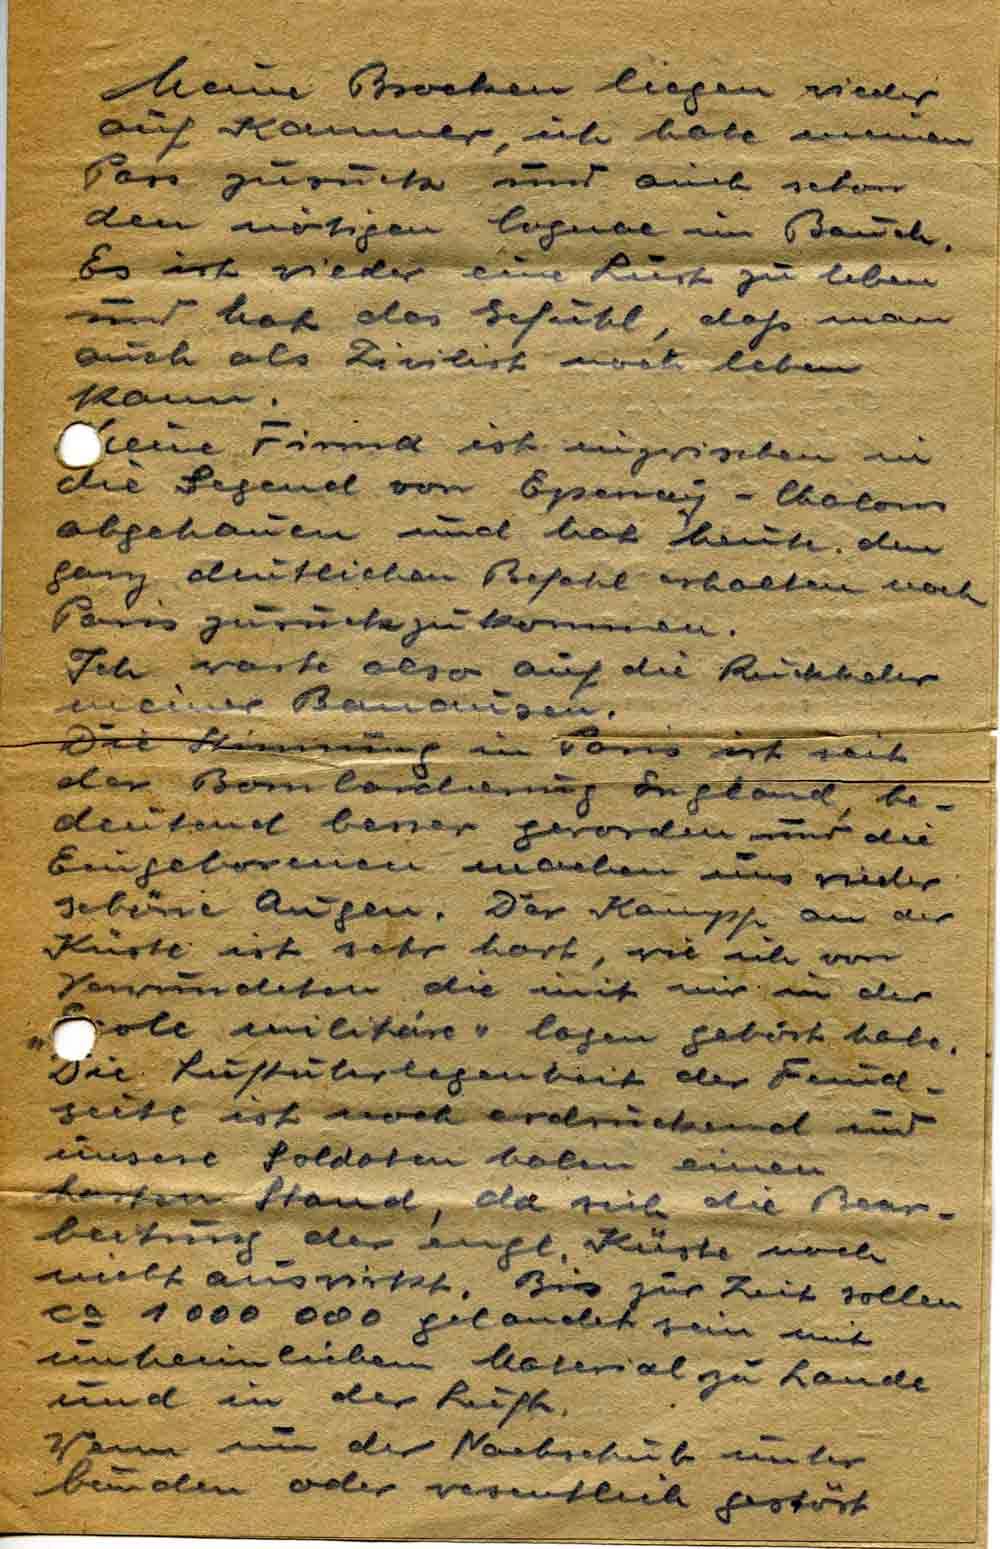 Meine Brocken liegen wieder
auf Kammer, ich habe meinen
Pass zurück und auch schon
den nötigen Cognac im Bauch.
Es ist wieder eine Lust zu leben
und hat das Gefühl, daß man
auch als Zivilist noch leben
kann.
Meine Firma ist inzwischen in
die Gegend von Epernay - Chalons
abgehauen und hat heute den
ganz deutlichen Befehl erhalten nach
Paris zurückzukommen.
Ich warte also auf die Rückkehr
meiner Banausen.
Die Stimmung in Paris ist seit
der Bombardierung England, be-
deutend besser geworden und die
Eingeborenen machen uns wieder
schöne Augen. Der Kampf an der
Küste ist sehr hart, wie ich von
Verwundeten die mit mir in der
"Ecole militäre" lagen gehört habe.
Die Luftüberlegenheit der Feind-
seite ist noch erdrückend und
unsere Soldaten haben einen
harten Stand, da sich die Bear-
beitung der engl. Küste noch
nicht auswirkt. Bis zur Zeit sollen
ca 1 000 000 gelandet sein mit
unheimlichem Material zu Lande
und in der Luft.
Wenn nun der Nachschub unter
bunden oder wesentlich gestört